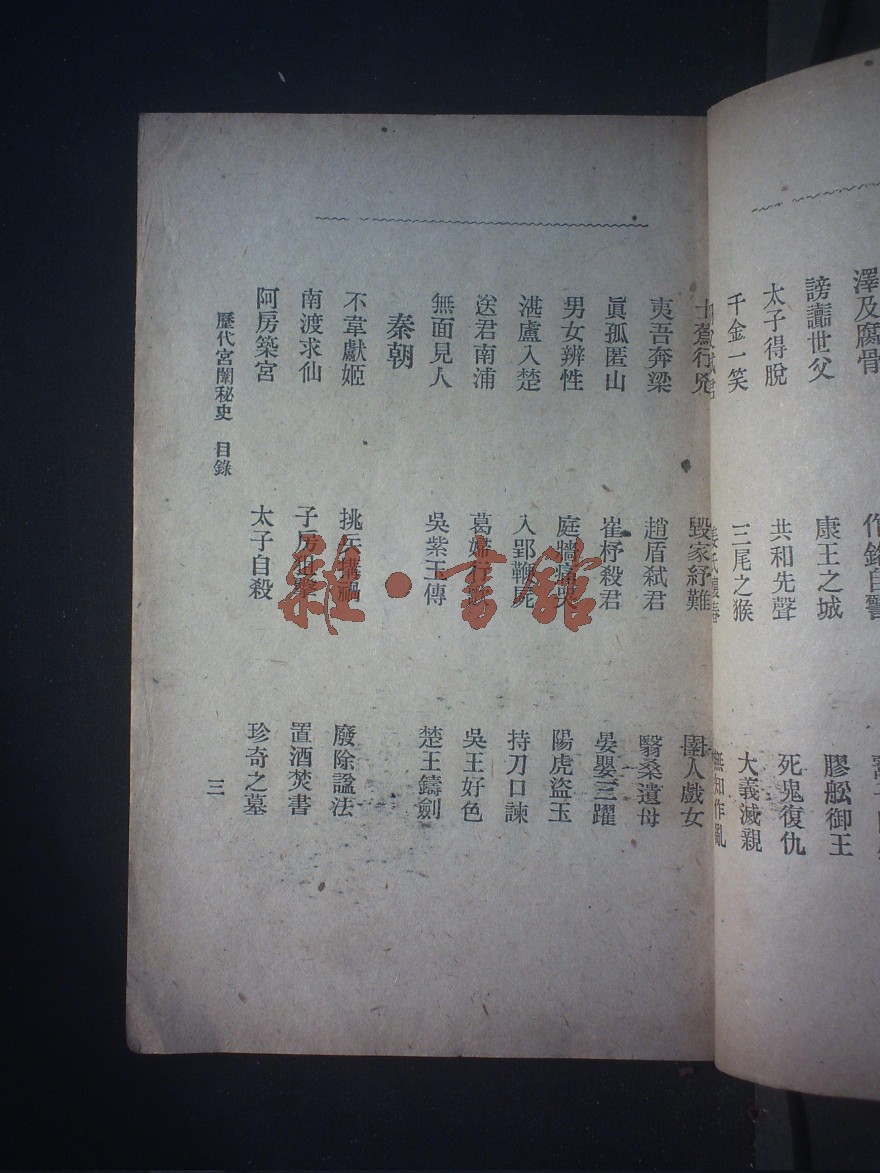 澤及腐骨
世父 康王之城 膠舩御王
太子得脫 共和先聲 死鬼復仇
千金一笑 三尾之猴 大義滅親
無知作亂
行兇 毀家紓難 圉人戲女
夷吾奔梁 趙盾弒君 翳桑遺母
眞孤匿山 崔杼殺君 晏嬰三躍
男女辨性 庭牆痛哭 陽虎盜玉
湛盧入楚 入郢鞭屍 持刀口諫
送君南浦 葛婦行 吳王好色
無面見人 吳紫玉傳 楚王鑄劍
秦朝
不韋獻姬 挑兵搆禍 廢除諡法
南渡求仙 子房狙擊 置酒焚書
阿房築宮 太子自殺 珍奇之墓
歷代宮闈秘史 目錄 三
雜·書館